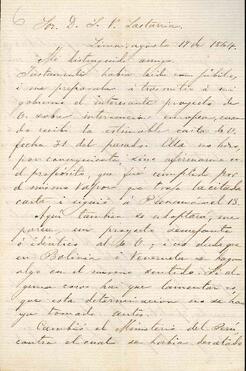 Sor. D. J. V. Lastarria,
Lima, agosto 17 de 1864.
Mi distinguido amigo:
Justamente habia leido con júbilo,
i me preparaba a trasmitir a mi
gobierno el interesante proyecto de
U. sobre intervencion europea, cuan-
do recibí la estimable carta de U.
fecha 31 del pasado. Ella no hizo,
por consiguiente, sino afirmarme en
el propósito, que fué cumplido por
el mismo vapor que trajo la citada
carta i siguió a Panamá el 13.
Aqui tambien se adoptará, me
parece, un proyecto semejante
o idéntico al de U., i no dudo que
en Bolivia i Venezuela se haga
algo en el mismo sentido. Si al-
guna cosa hai que lamentar es
que esta determinacion no se ha-
ya tomado antes.
Cambió el Ministerio del Perú,
contra el cual se habia desatado